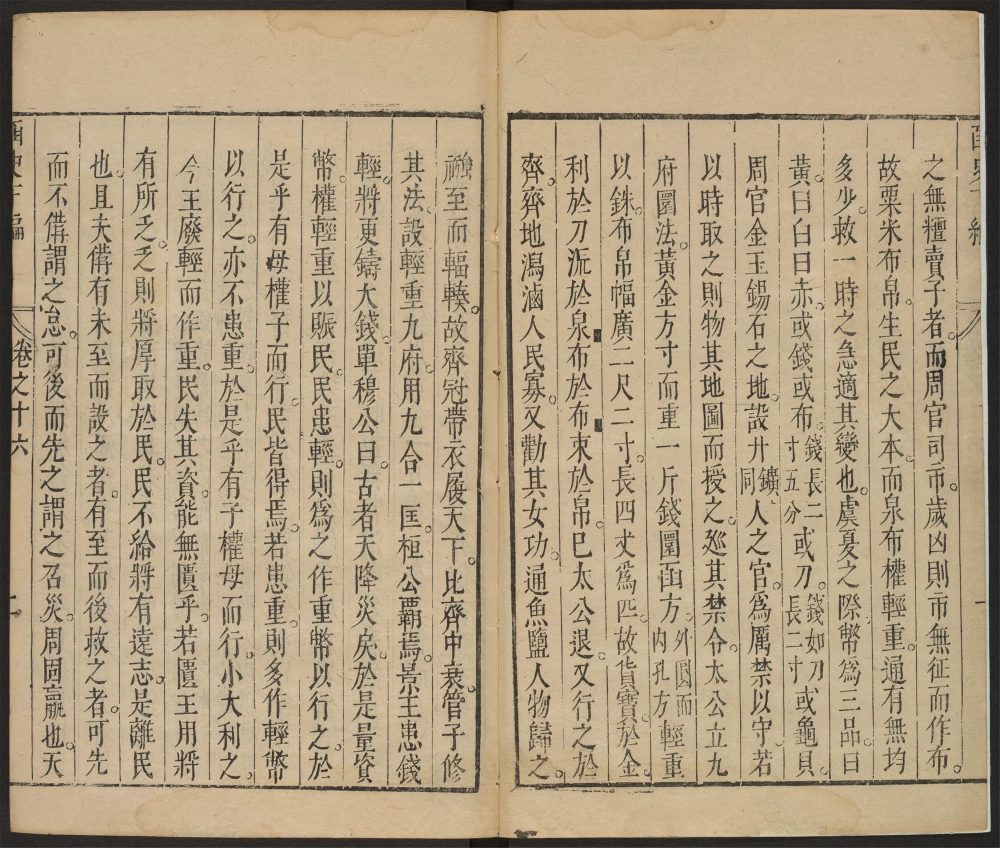 之無䊤賣子者而周官司市歲凶則市無征而作布
故粟米布帛生民之大本而泉布權輕重通有無均
多少救一時之急適其變也虞夏之際幣爲三品曰
黃曰白曰赤或錢或布錢長二寸五分或刀錢如刀長二寸或龜貝
周官金玉錫石之地設廾鑛同人之官爲厲禁以守若
以時取之則物其地圖而授之廵其禁令太公立九
府圜法黃金方寸而重一斤錢圜函方外圓而內孔方輕重
以銖布帛幅廣二尺二寸長四丈爲匹故貨寶於金
利於刀流於泉布於布束於帛巳太公退又行之於
齊齊地潟滷人民寡又勸其女功通魚鹽人物歸之
至而輻輳故齊冠帶衣履天下比齊中衰管子修
其法設輕重九府用九合一匡桓公覇焉景王患錢
輕將更鑄大錢單穆公曰古者天降災戾於是量資
幣權輕重以賑民民患輕則爲之作重幣以行之於
是乎有母權子而行民皆得焉若患重則多作輕幣
以行之亦不患重於是乎有子權母而行小大利之
今王廢輕而作重民失其資能無匱乎若匱王用將
有所乏乏則將厚取於民民不給將有遠志是離民
也且夫備有未至而設之者有至而後救之者可先
而不備謂之怠可後而先之謂之召災周固羸也天
卷之十六
二